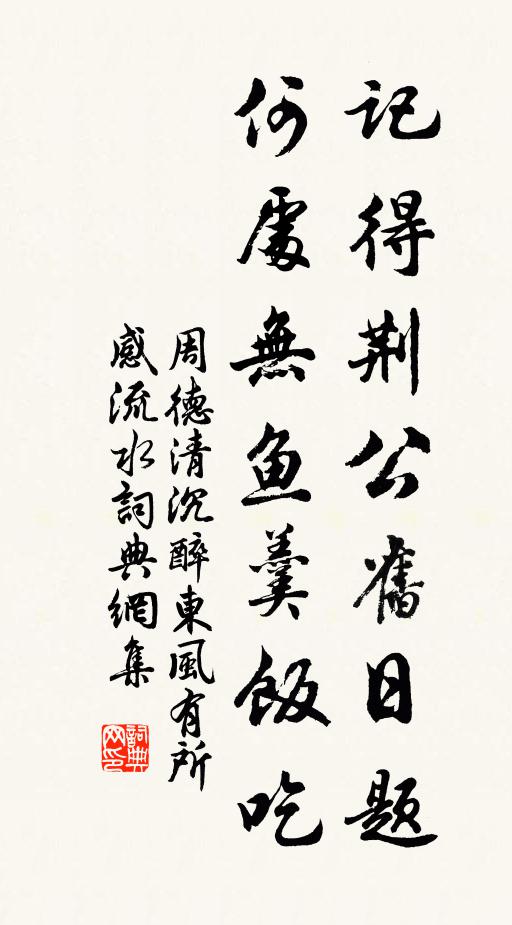 记得荆公舊日题
何處無鱼羹飯吃
周德清沉醉東風有所
感流水詞典網集
詞典网印